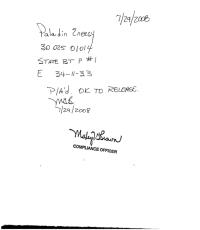 7/29/2008
Paladin Energy
30 025 01014
STATE BT P #1
E 34-11-33
P/A'd. OK TO RELEASE.
7/29/2008
COMPLIANCE OFFICER